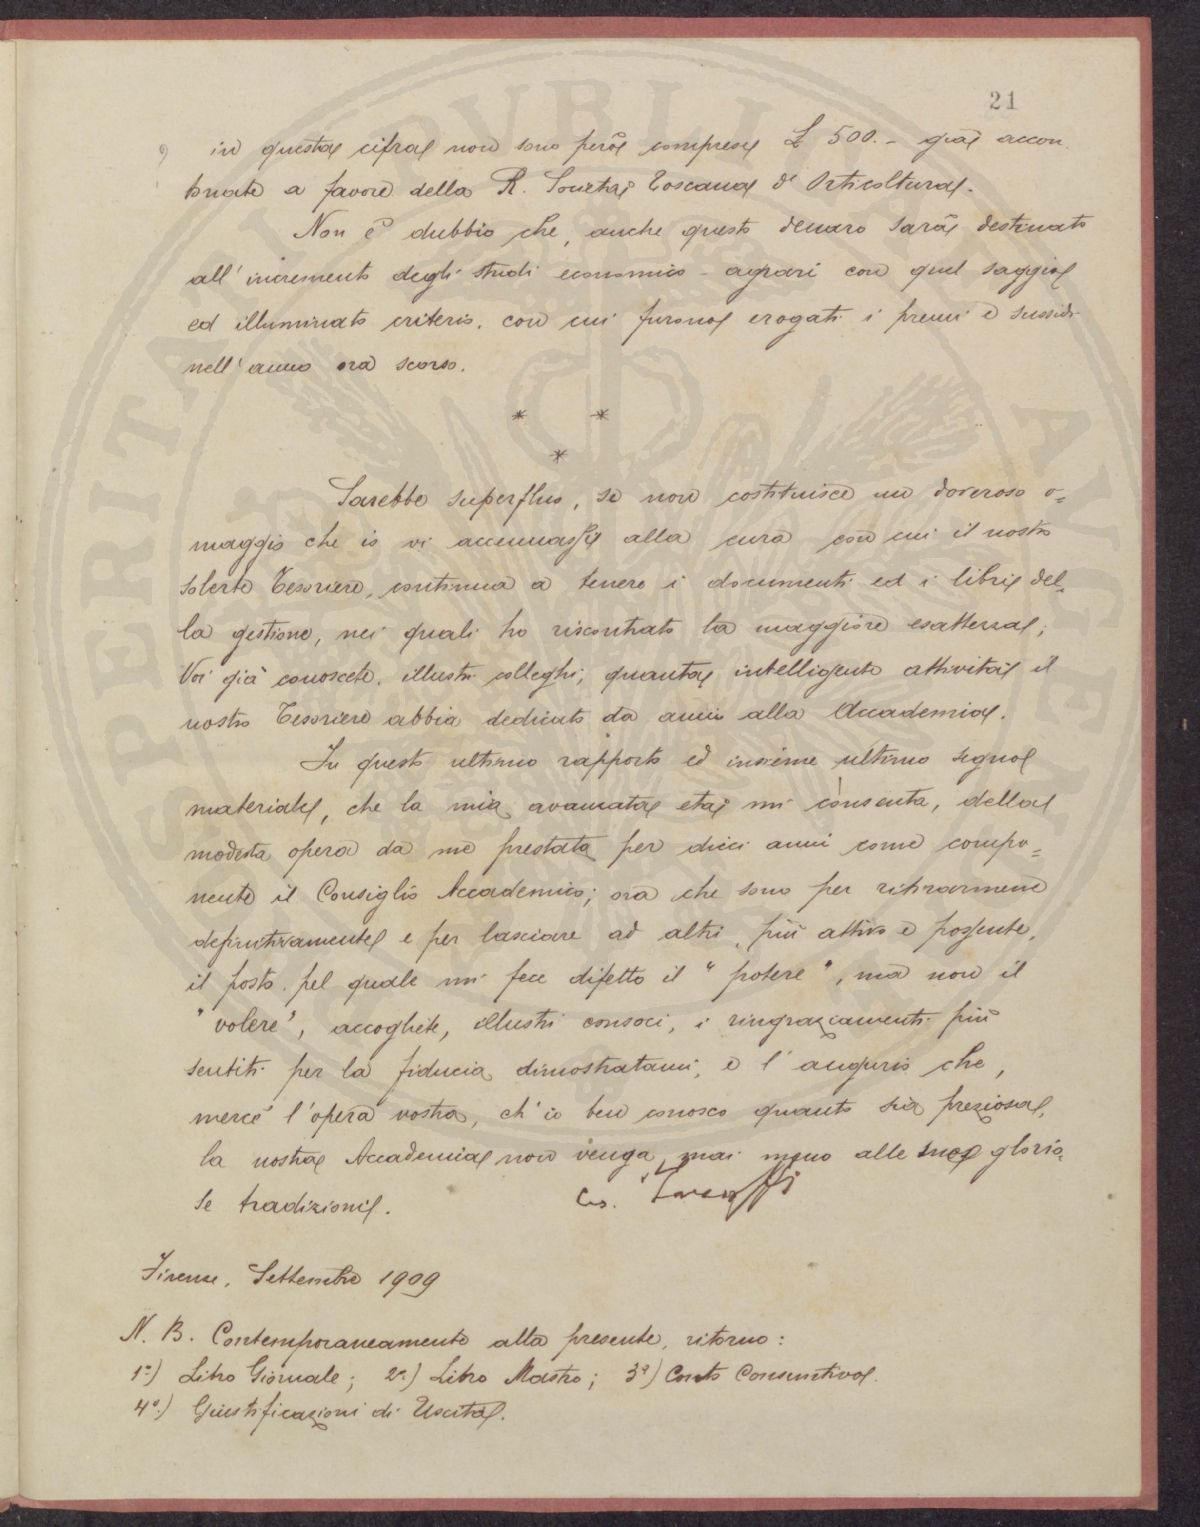 21
in questa cifra non sono però comprese £ 500.- già accan
tonate a favore della R. Società Toscana d'Orticoltura.
Non è dubbio che, anche questo denaro sarà destinato
all'incremento degli studi economico-agrari con quel saggio
ed illuminato criterio, con cui furono erogati i premi e sussidi
nell'anno ora scorso.
* *
*
Sarebbe superfluo, se non costituisce un doveroso o=
maggio che io vi accennassi alla cura con cui il nostro
solerte Tesoriere, continua a tenere i documenti ed i libri del=
la gestione, nei quali ho riscontrato la maggiore esattezza;
Voi già conoscete, illustri colleghi, quanta intelligente attività il
nostro Tesoriere abbia dedicato da anni alla Accademia.
In questo ultimo rapporto ed insieme ultimo segno
materiale, che la mia avanzata età mi consenta, della
modesta opera da me prestata per dieci anni come compo=
nente il Consiglio Accademico; ora che sono per ritirarmene
definitivamente e per lasciare ad altri, più attivo e possente,
il posto, pel quale mi fece difetto il "potere", ma non il
"volere", accogliete, illustri consoci, i ringraziamenti più
sentiti per la fiducia dimostratami, e l'augurio che,
mercé l'opera vostra, ch'io ben conosco quanto sia preziosa,
la nostra Accademia non venga mai meno alle sue glorio=
se tradizioni.
Firenze, Settembre 1909
N. B. Contemporaneamente alla presente, ritorno:
1°) Libro Giornale; 2°) Libro Mastro; 3°) Conto Consuntivo.
4°) Giustificazioni di Uscita.